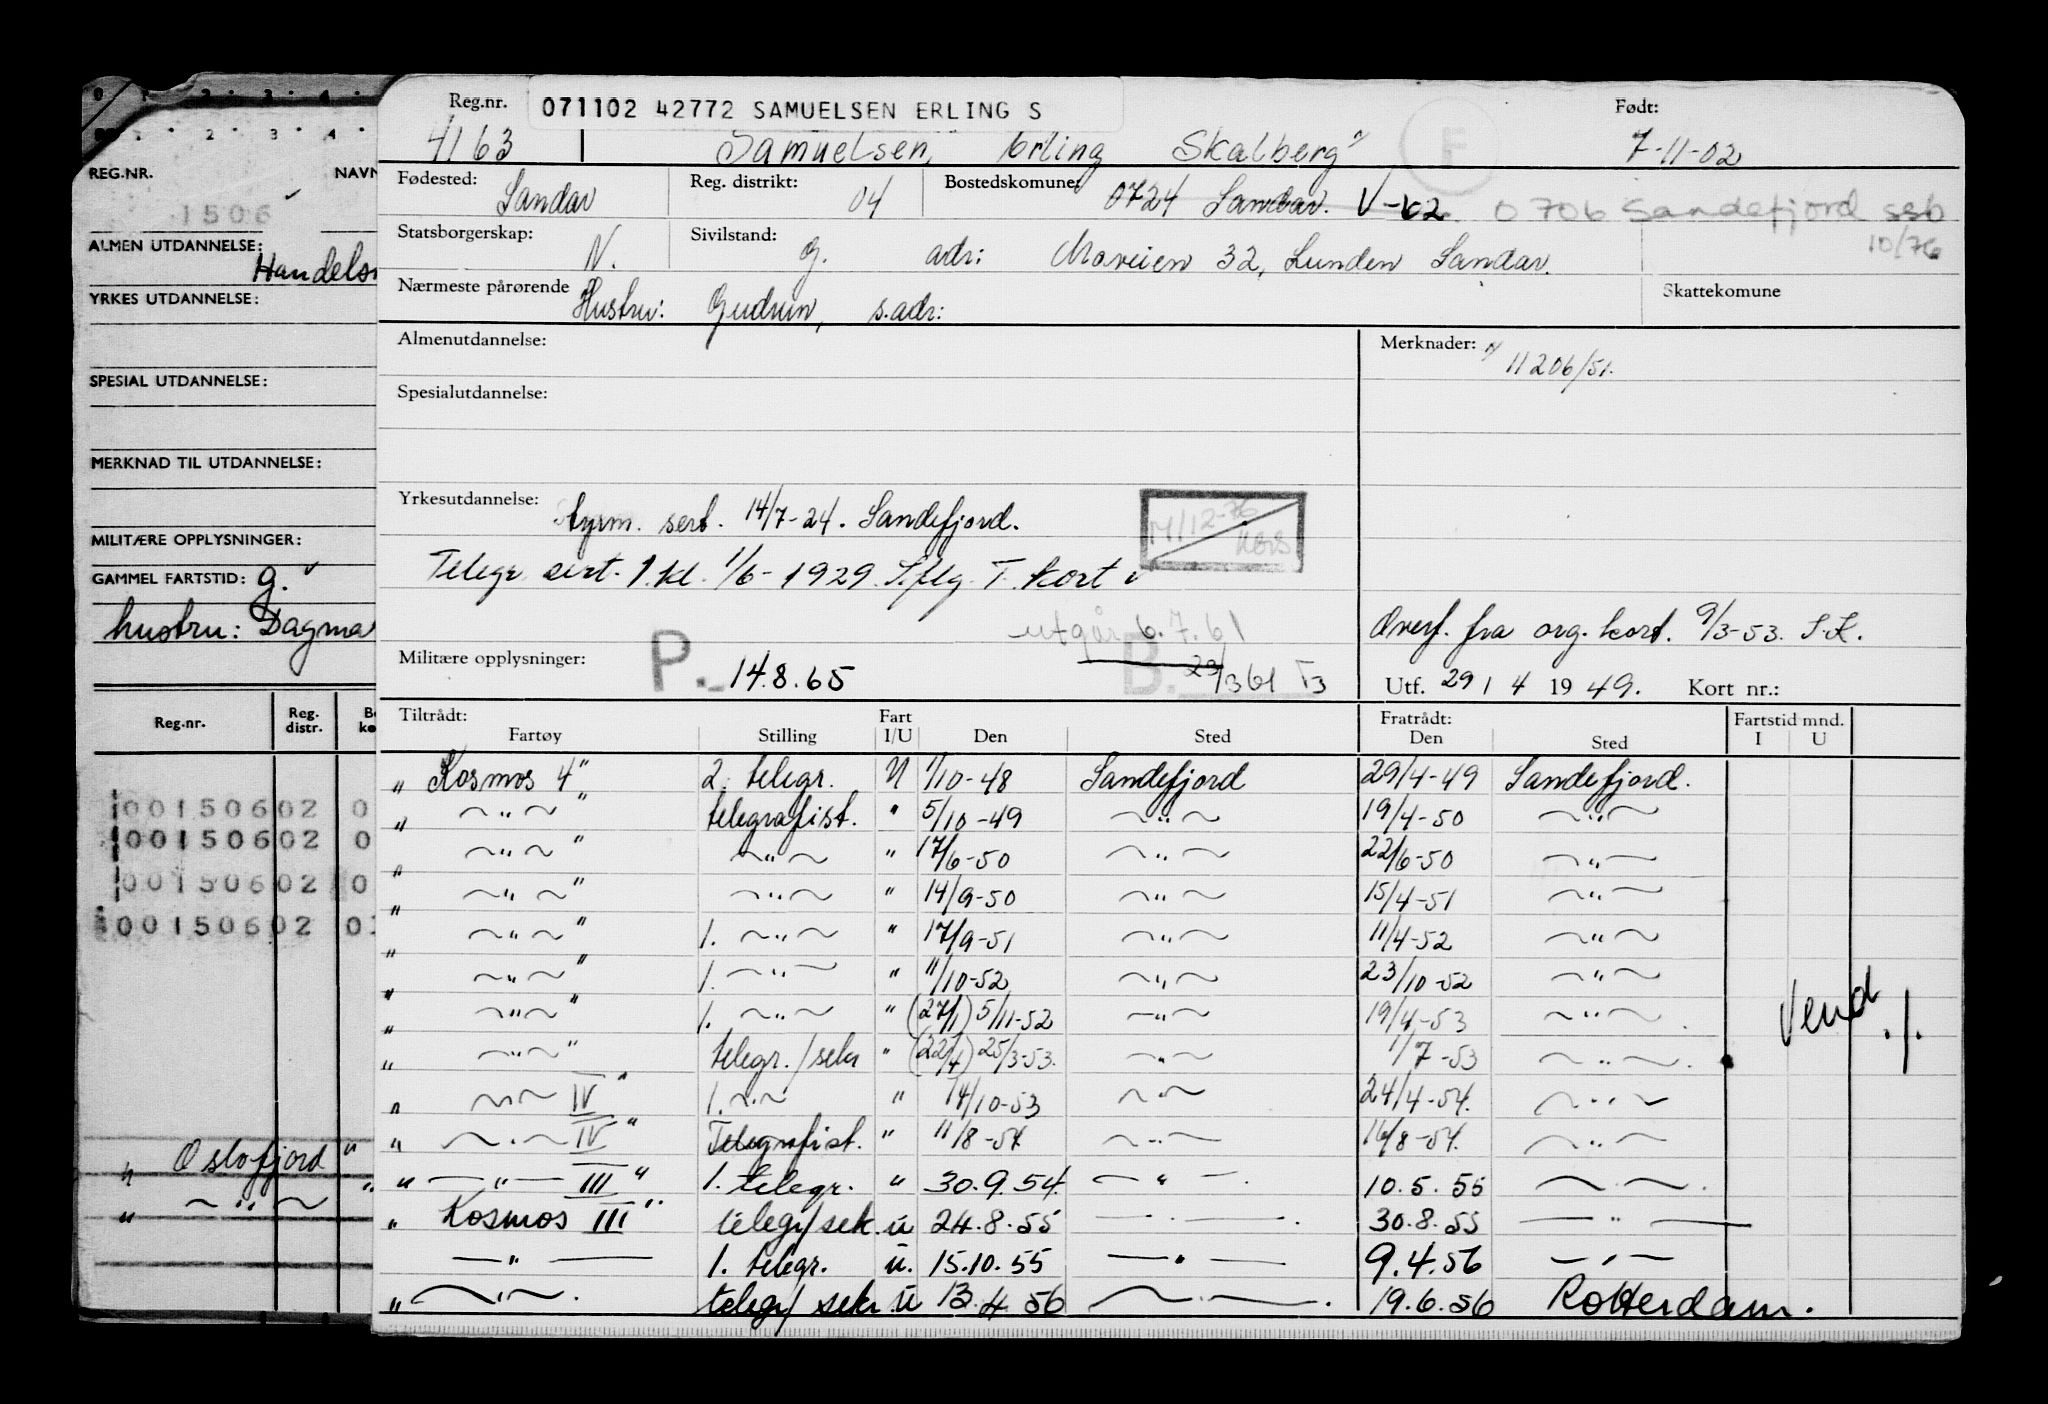 REG.NR. NAVN
1506
ALMEN UTDANNELSE: Handels
YRKES UTDANNELSE:
SPESIAL UTDANNELSE:
MERKNAD TIL UTDANNELSE:
MILITÆRE OPPLYSNINGER:
GAMMEL FARTSTID: g.
hustru: Dagma
Reg.nr. Reg. distr.
00150602 0
00150602 0
00150602 0
00150602 0
" Oslofjord "
" ~ " ~ "
Reg.nr. 071102 42772 SAMUELSEN ERLING S Født:
4163 Samuelsen, Erling Skalberg" F 7-11-02
Fødested: Sandar Reg. distrikt: 04 Bostedskomune: 0724 Sandar. V-02 0706 Sandefjord ssb
10/76
Statsborgerskap: N. Sivilstand: G. adr: Moveien 32, Lunden Sandar.
Nærmeste pårørende Hustru: Gudrun, s.adr: Skattekomune
Almenutdannelse: Merknader: " 11206/51.
Spesialutdannelse:
Yrkesutdannelse: Styrm. sert. 14/7-24. Sandefjord. 14/12-76
Telegr. sert. 1. kl. 1/6-1929. S.flg. T. kort
utgår 6.7.61 Overf. fra org. kort. 9/3-53. S.K.
Militære opplysninger: P. 14.8.65 B. 29/3 61 T3 Utf. 29 / 4 19 49. Kort nr.:
Tiltrådt: Fart Fratrådt: Fartstid mnd.
Fartøy Stilling I/U Den Sted Den Sted I U
" Kosmos 4" 2. telegr. U 1/10-48 Sandefjord 29/4-49 Sandefjord.
" ~ " ~ " telegrafist. " 5/10-49 ~ " ~ 19/4-50 ~ " ~
" ~ " ~ " ~ " ~ " 17/6-50 ~ " ~ 22/6-50 ~ " ~
" ~ " ~ " ~ " ~ " 14/9-50 ~ " ~ 15/4-51 ~ " ~
" ~ " ~ " 1. ~ " ~ " 17/9-51 ~ " ~ 11/4-52 ~ " ~
" ~ " ~ " 1. ~ " ~ " 11/10-52 ~ " ~ 23/10-52 ~ " ~
" ~ " ~ " 1. ~ " ~ " (27/1) 5/11-52 ~ " ~ 19/4-53 ~ " ~ Vend ./.
" ~ " ~ " telegr./sekr " (22/4) 25/3-53. ~ " ~ 1/7-53 ~ " ~
" ~ " ~ IV " 1. ~ " ~ " 14/10-53 ~ " ~ 24/4-54. ~ " ~
" ~ " ~ IV " Telegrafist. " 11/8-54 ~ " ~ 16/8-54. ~ " ~
" — " — III " 1. telegr. " 30.9.54. — " — 10.5.55 — " —
" Kosmos III" telegr/sek. u 24.8.55 — " — 30.8.55 — " —
— " — 1. telegr. u. 15.10.55 — " — 9.4.56 — " —
" ~ " ~. telegr/ sekr. u 13.4.56 ~ " ~. 19.6.56 Rotterdam.